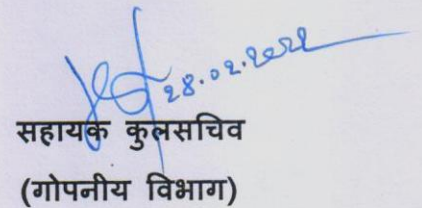 28.02.2022
सहायक कुलसचिव
(गोपनीय विभाग)